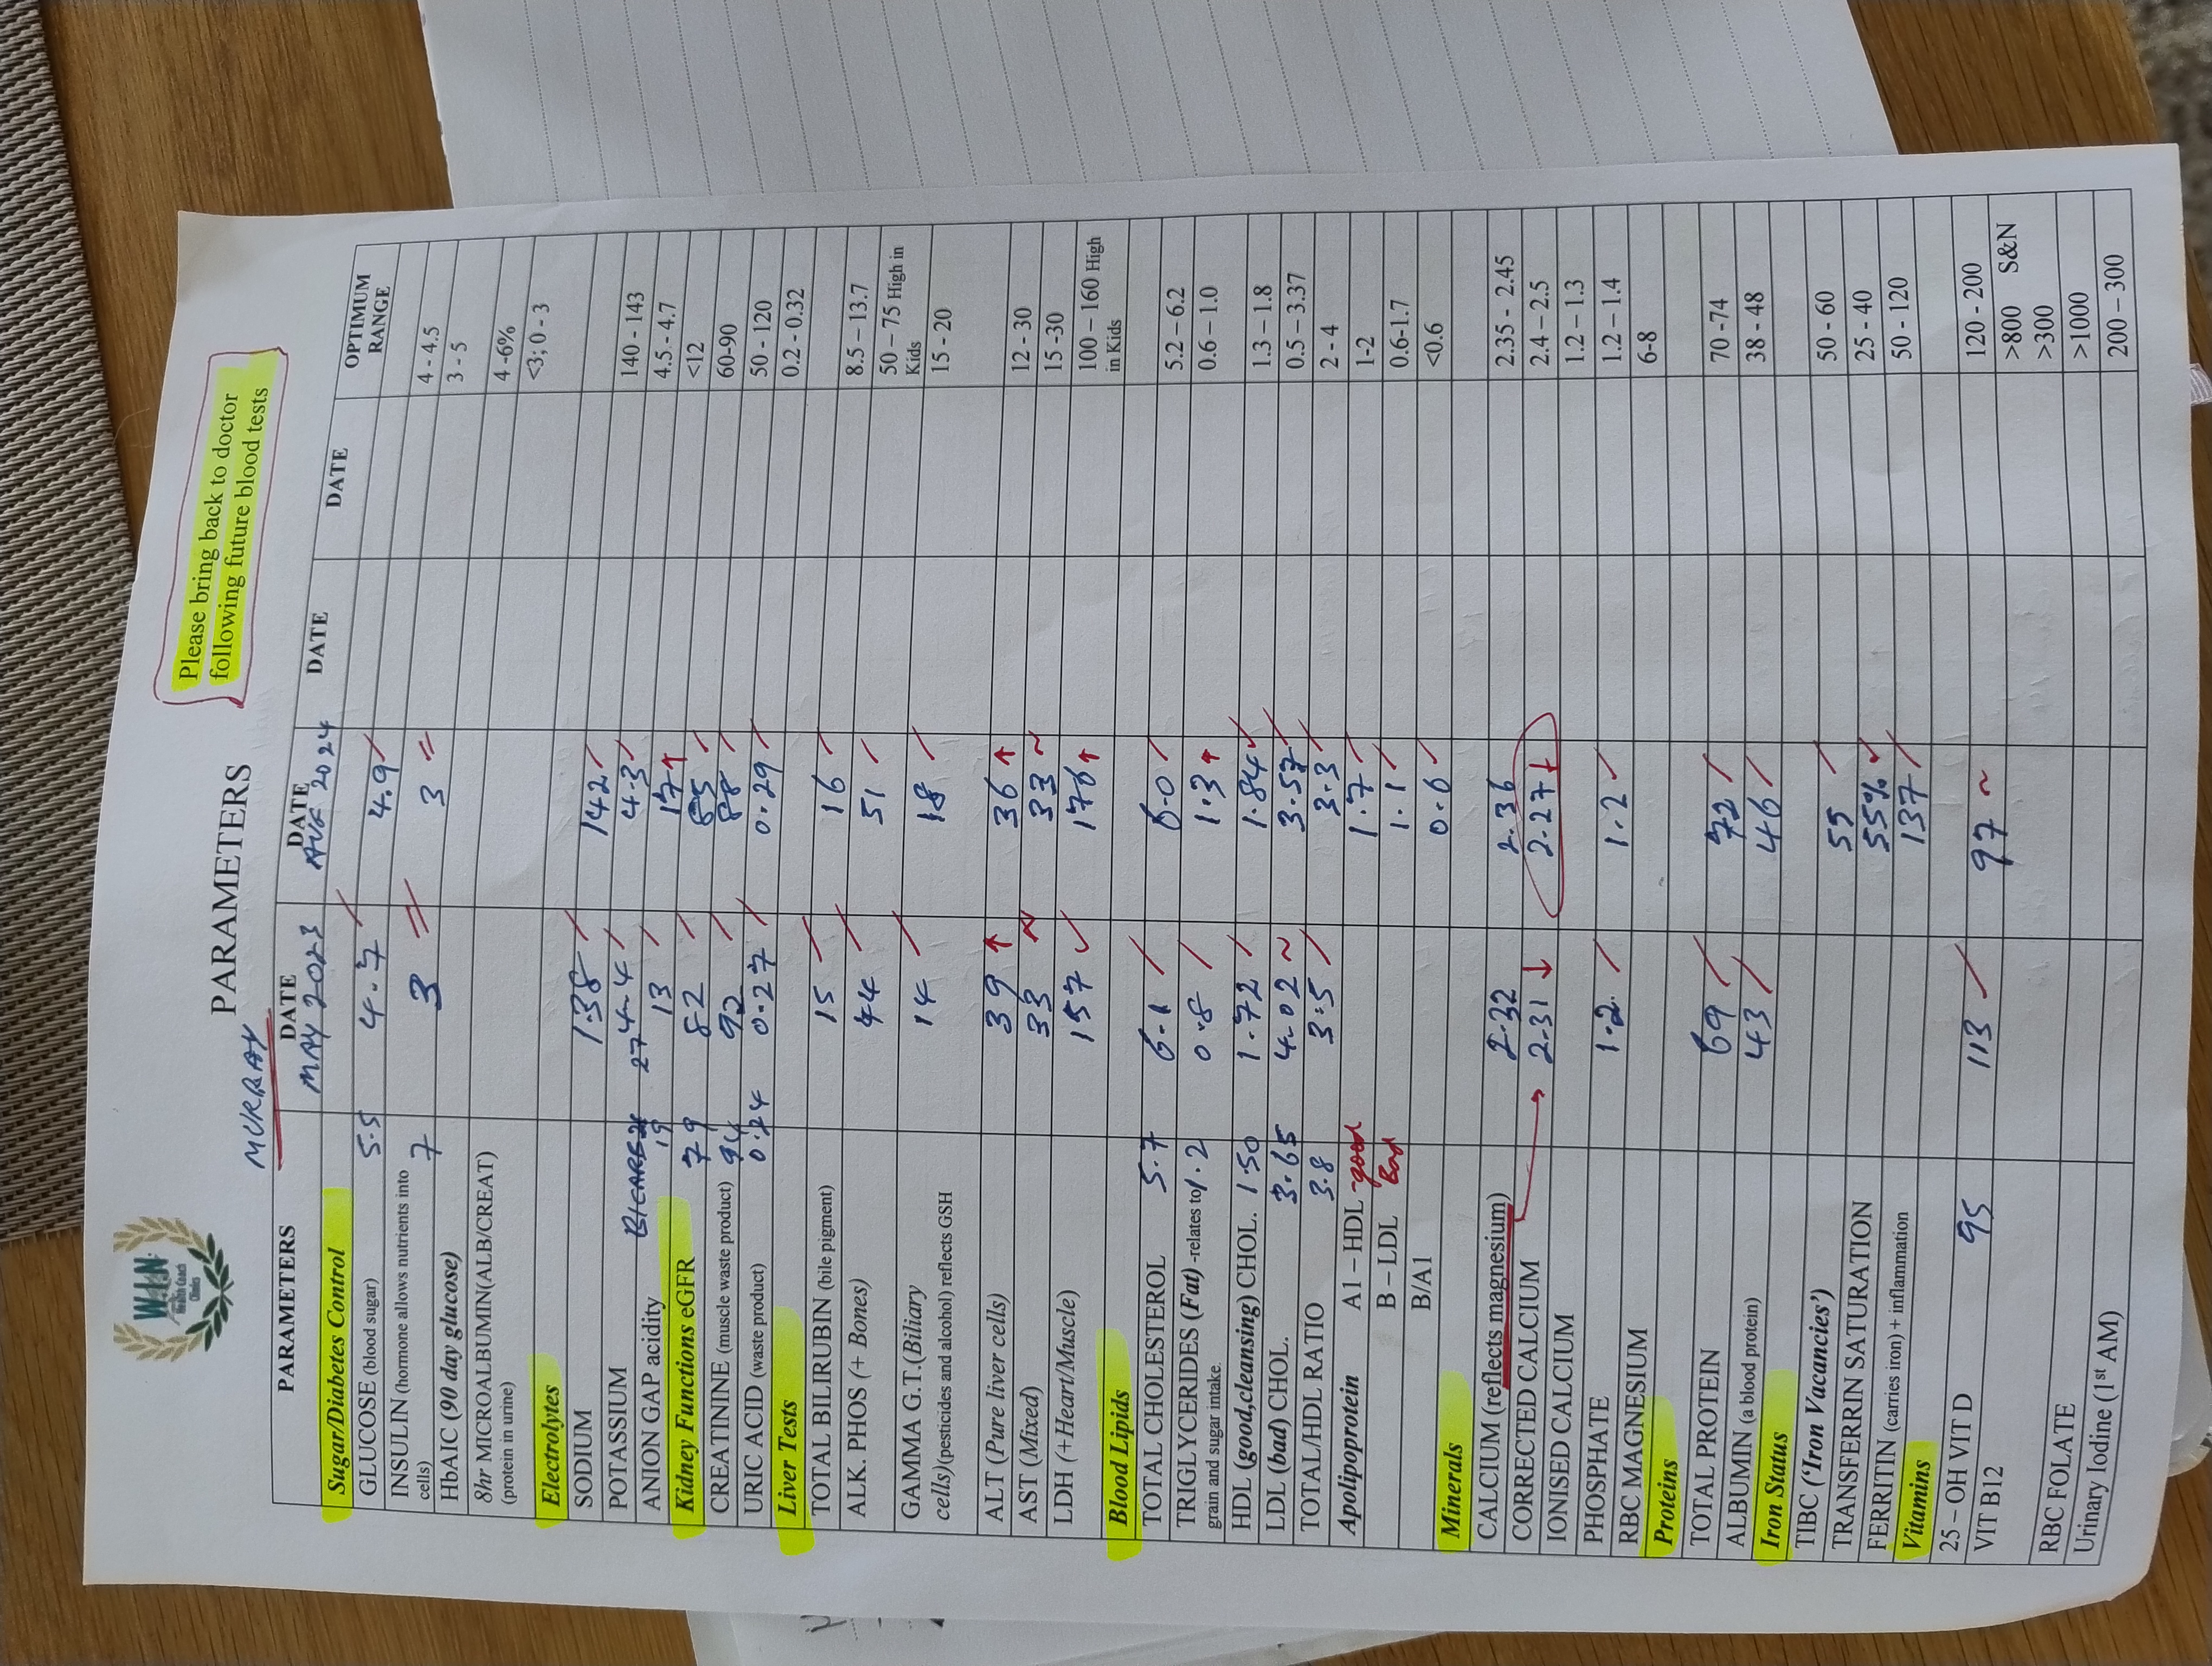 WIN
Health Coach
Clinics
Please bring back to doctor
following future blood tests
MURRAY
PARAMETERS
PARAMETERS DATE MAY 2023 DATE AUG 2024 DATE DATE OPTIMUM RANGE
Sugar/Diabetes Control
GLUCOSE (blood sugar) 5.5 4.7 4.9 4 - 4.5
INSULIN (hormone allows nutrients into cells) 7 3 3 3 - 5
HbAIC (90 day glucose) 4 -6%
8hr MICROALBUMIN(ALB/CREAT) (protein in urine) <3; 0 - 3
Electrolytes
SODIUM 138 142 140 - 143
POTASSIUM 4.4 4.3 4.5 - 4.7
BICARB 27
ANION GAP acidity 19 13 17 ↑ <12
Kidney Functions eGFR 79 82 85 60-90
CREATININE (muscle waste product) 94 92 88 50 - 120
URIC ACID (waste product) 0.24 0.27 0.29 0.2 - 0.32
Liver Tests
TOTAL BILIRUBIN (bile pigment) 15 16 8.5 – 13.7
ALK. PHOS (+ Bones) 44 51 50 – 75 High in Kids
GAMMA G.T.(Biliary cells)(pesticides and alcohol) reflects GSH 14 18 15 - 20
ALT (Pure liver cells) 39 ↑ 36 ↑ 12 - 30
AST (Mixed) 33 ~ 33 ~ 15 -30
LDH (+Heart/Muscle) 157 ✓ 176 ↑ 100 – 160 High in Kids
Blood Lipids
TOTAL CHOLESTEROL 5.7 6.1 6.0 5.2 – 6.2
TRIGLYCERIDES (Fat) -relates to grain and sugar intake. 1.2 0.8 1.3 ↑ 0.6 – 1.0
HDL (good,cleansing) CHOL. 1.50 1.72 1.84 1.3 – 1.8
LDL (bad) CHOL. 3.65 4.02 ~ 3.57 0.5 – 3.37
TOTAL/HDL RATIO 3.8 3.5 3.3 2 - 4
Apolipoprotein A1 – HDL - good 1.7 1-2
B – LDL Bad 1.1 0.6-1.7
B/A1 0.6 <0.6
Minerals
CALCIUM (reflects magnesium) 2.32 2.36 2.35 - 2.45
CORRECTED CALCIUM 2.31 ↓ 2.27 ↓ 2.4 – 2.5
IONISED CALCIUM 1.2 – 1.3
PHOSPHATE 1.2 1.2 1.2 – 1.4
RBC MAGNESIUM 6-8
Proteins
TOTAL PROTEIN 69 72 70 -74
ALBUMIN (a blood protein) 43 46 38 - 48
Iron Status
TIBC (‘Iron Vacancies’) 55 50 - 60
TRANSFERRIN SATURATION 55% 25 - 40
FERRITIN (carries iron) + inflammation 137 50 - 120
Vitamins
25 – OH VIT D 95 113 97 ~ 120 - 200
VIT B12 >800 S&N
>300
RBC FOLATE >1000
Urinary Iodine (1st AM) 200 – 300